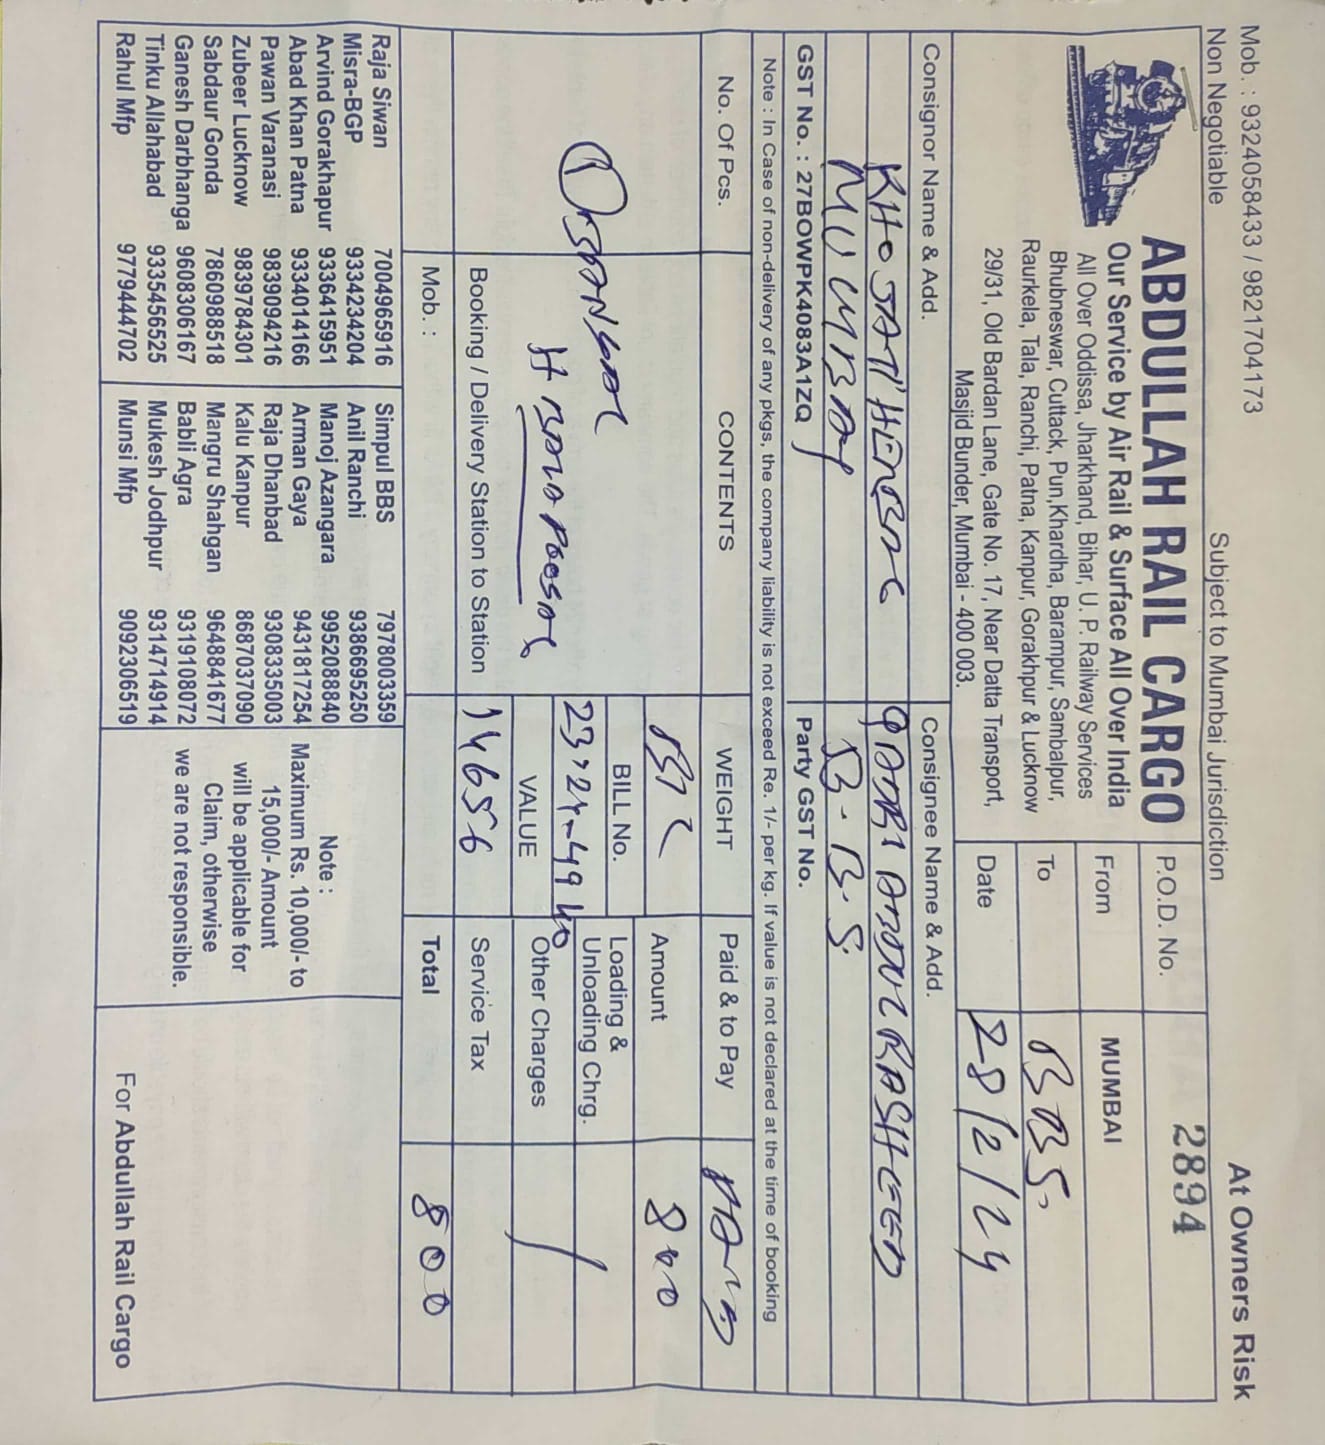 Mob. : 9324058433 / 9821704173
Subject to Mumbai Jurisdiction
At Owners Risk
Non Negotiable
ABDULLAH RAIL CARGO
Our Service by Air Rail & Surface All Over India
All Over Oddissa, Jharkhand, Bihar, U. P. Railway Services
Bhubneswar, Cuttack, Pun,Khardha, Barampur, Sambalpur,
Raurkela, Tala, Ranchi, Patna, Kanpur, Gorakhpur & Lucknow
29/31, Old Bardan Lane, Gate No. 17, Near Datta Transport,
Masjid Bunder, Mumbai - 400 003.
P.O.D. No. 2894
From MUMBAI
To BBS.
Date 28/2/24
Consignor Name & Add.
KHOJATI
MUMBAI
Consignee Name & Add.
QADRI ABDUL RASHEED
B.B.S.
GST No. : 27BOWPK4083A1ZQ
Party GST No.
Note : In Case of non-delivery of any pkgs, the company liability is not exceed Re. 1/- per kg. If value is not declared at the time of booking
No. Of Pcs. CONTENTS WEIGHT Paid & to Pay
1
Amount 800
BILL No.
Loading &
Unloading Chrg.
23-24-4940
VALUE
Other Charges
14656
Booking / Delivery Station to Station
Service Tax
Mob. :
Total 800
Raja Siwan 7004965916
Misra-BGP 9334234204
Arvind Gorakhapur 9336415951
Abad Khan Patna 9334014166
Pawan Varanasi 9839094216
Zubeer Lucknow 9839784301
Sabdaur Gonda 7860988518
Ganesh Darbhanga 9608306167
Tinku Allahabad 9335456525
Rahul Mfp 9779444702
Simpul BBS 7978003359
Anil Ranchi 9386695250
Manoj Azangara 9952088840
Arman Gaya 9431817254
Raja Dhanbad 9308335003
Kalu Kanpur 8687037090
Mangru Shahgan 9648841677
Babli Agra 9319108072
Mukesh Jodhpur 9914714914
Munsi Mfp 9092306519
Note :
Maximum Rs. 10,000/- to
15,000/- Amount
will be applicable for
Claim, otherwise
we are not responsible.
For Abdullah Rail Cargo